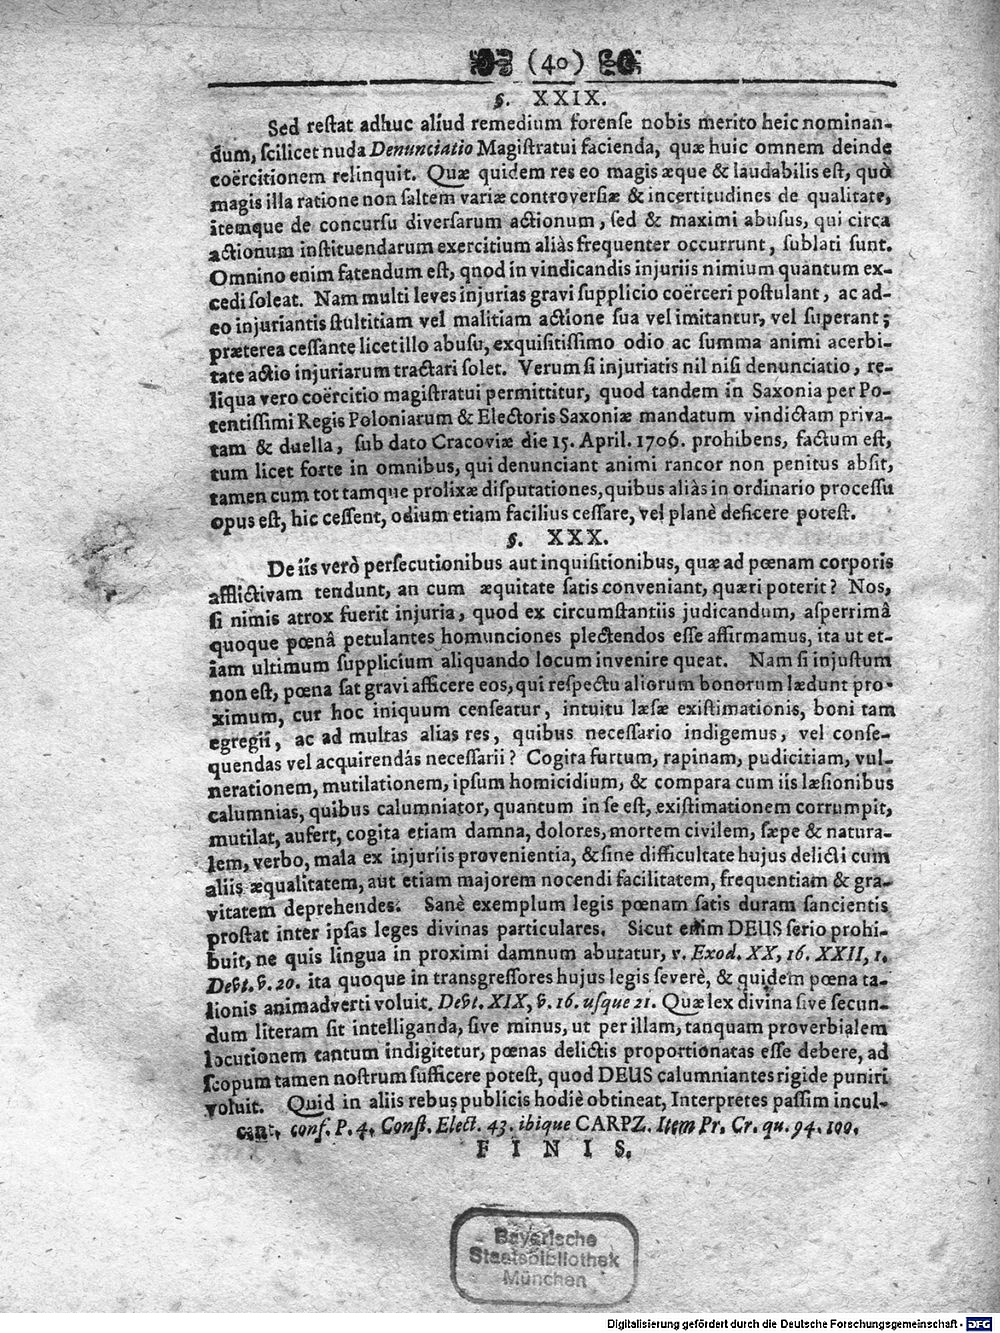 (40)
§. XXIX.
Sed reſtat adhuc aliud remedium forenſe nobis merito heic nominan-
dum, ſcilicet nuda Denunciatio Magiſtratui facienda, quæ huic omnem deinde
coërcitionem relinquit. Quæ quidem res eo magis æque & laudabilis eſt, quò
magis illa ratione non ſaltem variæ controverſiæ & incertitudines de qualitate,
itemque de concurſu diverſarum actionum, ſed & maximi abuſus, qui circa
actionum inſtituendarum exercitium aliàs frequenter occurrunt, ſublati ſunt.
Omnino enim fatendum eſt, qnod in vindicandis injuriis nimium quantum ex-
cedi ſoleat. Nam multi leves injurias gravi ſupplicio coërceri poſtulant, ac ad-
eo injuriantis ſtultitiam vel malitiam actione ſua vel imitantur, vel ſuperant;
præterea ceſſante licet illo abuſu, exquiſitiſſimo odio ac ſumma animi acerbi-
tate actio injuriarum tractari ſolet. Verum ſi injuriatis nil niſi denunciatio, re-
liqua vero coërcitio magiſtratui permittitur, quod tandem in Saxonia per Po-
tentiſſimi Regis Poloniarum & Electoris Saxoniæ mandatum vindictam priva-
tam & duella, ſub dato Cracoviæ die 15. April. 1706. prohibens, factum eſt,
tum licet forte in omnibus, qui denunciant animi rancor non penitus abſit,
tamen cum tot tamque prolixæ diſputationes, quibus aliàs in ordinario proceſſu
opus eſt, hic ceſſent, odium etiam facilius ceſſare, vel planè deficere poteſt.
§. XXX.
De iis verò perſecutionibus aut inquiſitionibus, quæ ad pœnam corporis
afflictivam tendunt, an cum æquitate ſatis conveniant, quæri poterit? Nos,
ſi nimis atrox fuerit injuria, quod ex circumſtantiis judicandum, aſperrimâ
quoque pœnâ petulantes homunciones plectendos eſſe affirmamus, ita ut et-
iam ultimum ſupplicium aliquando locum invenire queat. Nam ſi injuſtum
non eſt, pœna ſat gravi afficere eos, qui reſpectu aliorum bonorum lædunt pro-
ximum, cur hoc iniquum cenſeatur, intuitu læſæ exiſtimationis, boni tam
egregii, ac ad multas alias res, quibus neceſſario indigemus, vel conſe-
quendas vel acquirendás neceſſarii? Cogita furtum, rapinam, pudicitiam, vul-
nerationem, mutilationem, ipſum homicidium, & compara cum iis læſionibus
calumnias, quibus calumniator, quantum in ſe eſt, exiſtimationem corrumpit,
mutilat, aufert, cogita etiam damna, dolores, mortem civilem, ſæpe & natura-
lem, verbo, mala ex injuriis provenientia, & ſine difficultate hujus delicti cum
aliis æqualitatem, aut etiam majorem nocendi facilitatem, frequentiam & gra-
vitatem deprehendes. Sanè exemplum legis pœnam ſatis duram ſancientis
proſtat inter ipſas leges divinas particulares. Sicut enim DEUS ſerio prohi-
buit, ne quis lingua in proximi damnum abutatur, v. Exod. XX, 16. XXII, 1.
Deut. v. 20. ita quoque in transgreſſores hujus legis ſeverè, & quidem pœna ta-
lionis animadverti voluit. Deut. XIX, v. 16. uſque 21. Quæ lex divina ſive ſecun-
dum literam ſit intelliganda, ſive minus, ut per illam, tanquam proverbialem
locutionem tantum indigitetur, pœnas delictis proportionatas eſſe debere, ad
ſcopum tamen noſtrum ſufficere poteſt, quod DEUS calumniantes rigide puniri
voluit. Quid in aliis rebus publicis hodiè obtineat, Interpretes paſſim incul-
cant, conf. P. 4. Conſt. Elect. 43. ibique CARPZ. Item Pr. Cr. qu. 94. 100.
F I N I S.
Bayerische
Staatsbibliothek
München
Digitalisierung gefördert durch die Deutsche Forschungsgemeinschaft - DFG